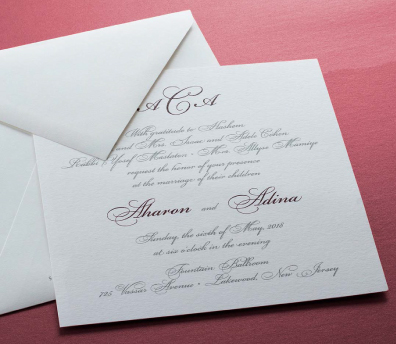 ACA
With gratitude to Hashem
and Mrs. Adele Cohen
Rabbi & Mrs.
request the honor of your presence
at the marriage of their children
Aharon and Adina
Sunday, the sixth of May, 2018
at six o'clock in the evening
Fountain Ballroom
725 Vassar Avenue • Lakewood, New Jersey